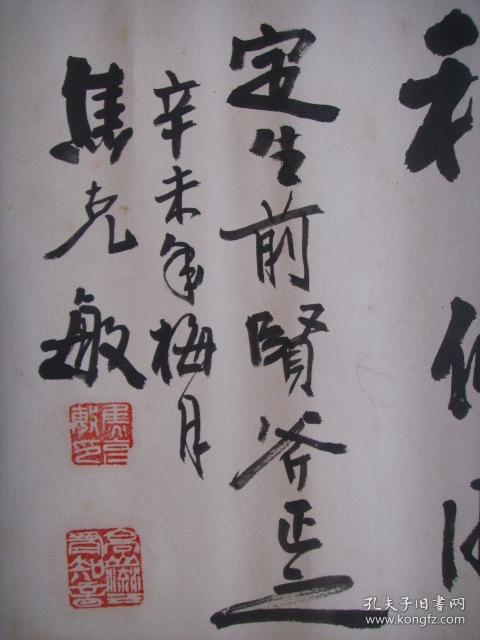 定生前賢斧正之
辛未年梅月
焦克敏
焦克敏印
孔夫子旧书网
www.kongfz.com